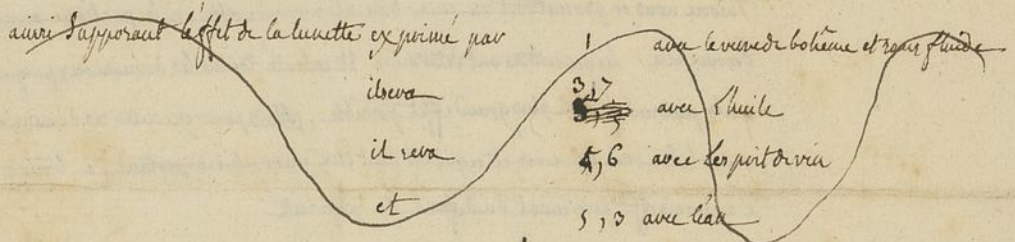 ainsi supposant l'effet de la lunette exprimé par 1 avec le verre de bohême et sans fluide
il sera 3,7 avec l'huile
il sera 4,6 avec l'esprit de vin
et 5,3 avec l'eau